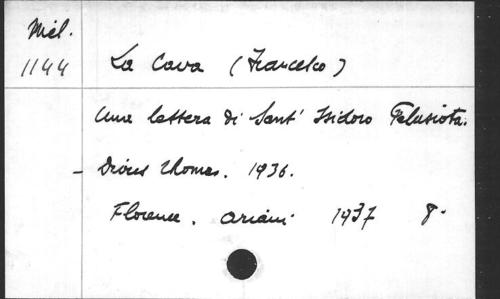 Mél.
1144 La Cava (Francesco)
Una lettera di Sant' Isidoro Pelusiota.
- Divus Thomas. 1936.
Florence. Ariani 1937 8°